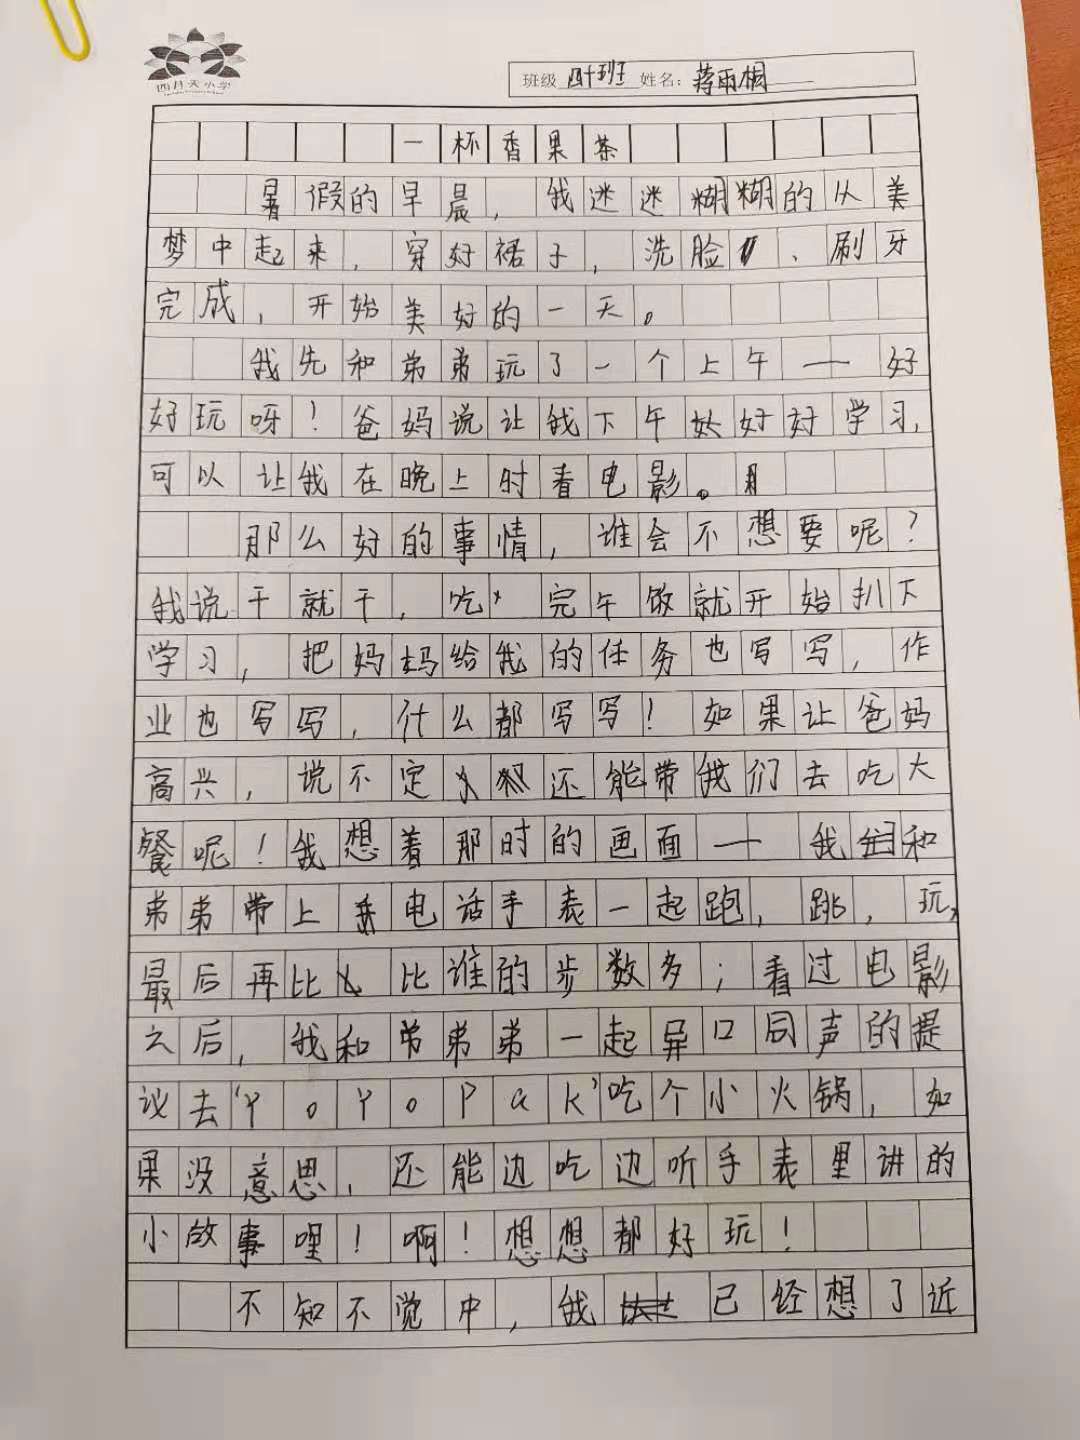 四月天小学
班级 四十班 姓名：蒋雨桐
一杯香果茶
暑假的早晨，我迷迷糊糊的从美
梦中起来，穿好裙子，洗脸、刷牙
完成，开始美好的一天。
我先和弟弟玩了一个上午——好
好玩呀！爸妈说让我下午好好学习，
可以让我在晚上时看电影。
那么好的事情，谁会不想要呢？
我说干就干，吃完午饭就开始扒下
学习，把妈妈给我的任务也写写，作
业也写写，什么都写写！如果让爸妈
高兴，说不定还能带我们去吃大
餐呢！我想着那时的画面——我和
弟弟带上电话手表一起跑，跳，玩，
最后再比比谁的步数多；看过电影
之后，我和弟弟弟一起异口同声的提
议去‘YoYoPak’吃个小火锅，如
果没意思，还能边吃边听手表里讲的
小故事哩！啊！想想都好玩！
不知不觉中，我已经想了近